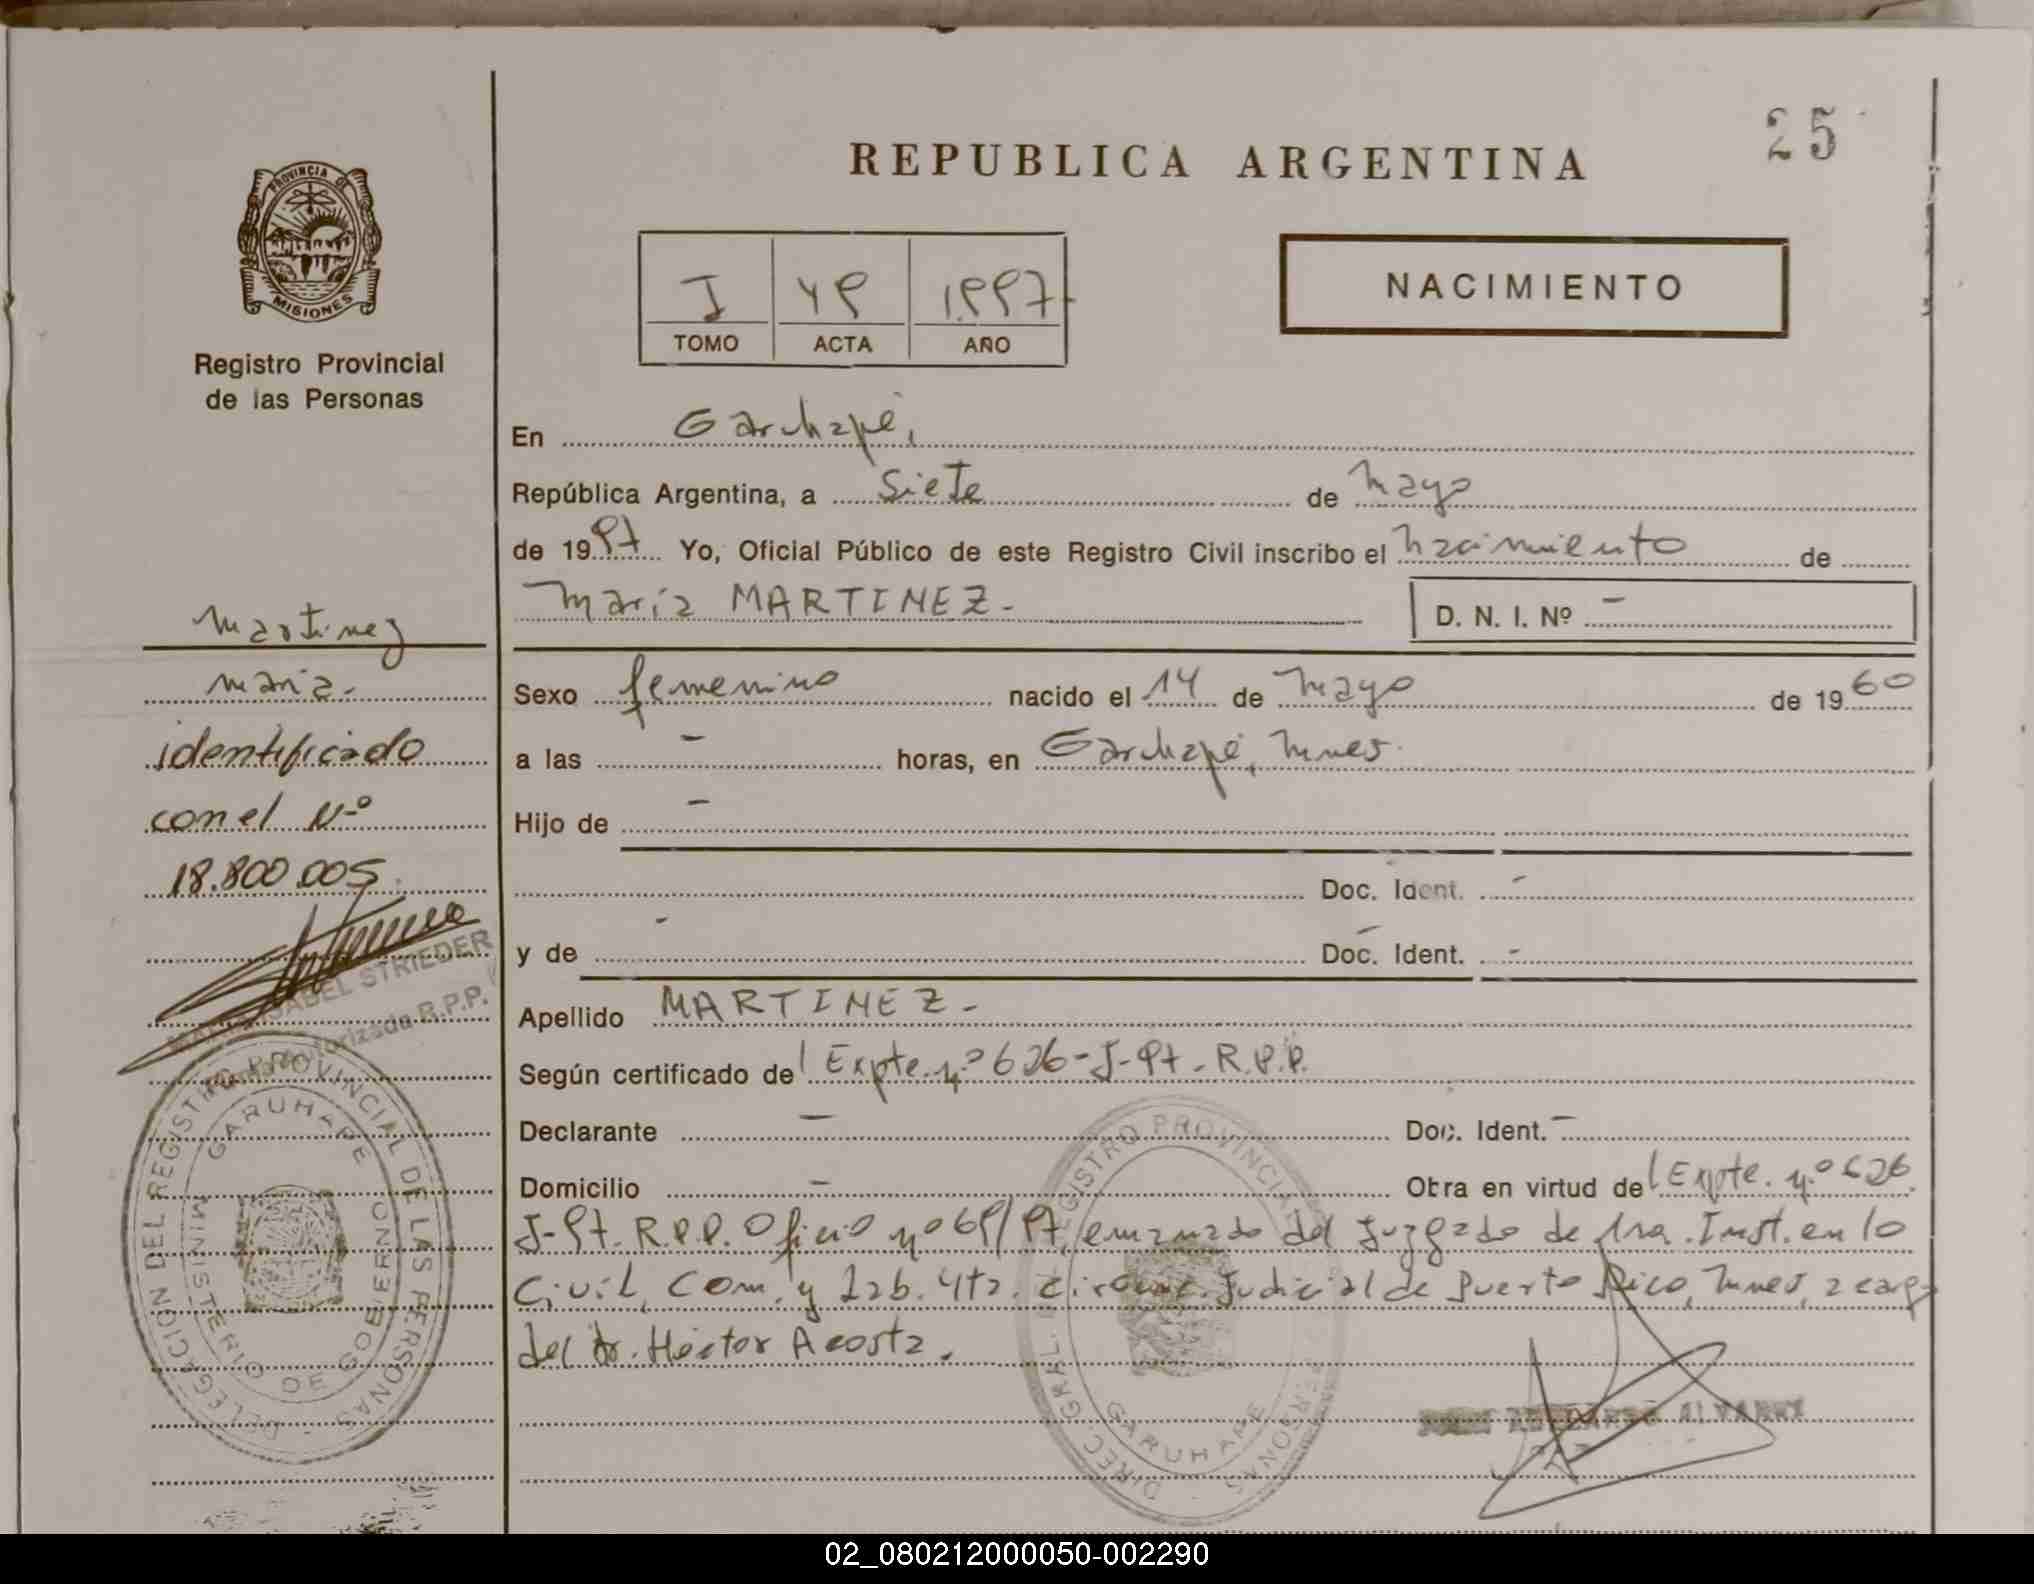 25
REPUBLICA ARGENTINA
PROVINCIA DE
MISIONES
Registro Provincial
de las Personas
I 49 1.997
TOMO ACTA AÑO
NACIMIENTO
En Garuhapé,
República Argentina, a siete de mayo
de 1997 Yo, Oficial Público de este Registro Civil inscribo el nacimiento de
María MARTINEZ.-
D. N. I. Nº -
Martinez
maria.-
identificado
con el Nº
18.800.005
ISABEL STRIEDER
Autorizada R.P.P.
Sexo femenino nacido el 14 de mayo de 1960
a las - horas, en Garuhapé, Mnes.
Hijo de -
Doc. Ident. -
y de - Doc. Ident. -
Apellido MARTINEZ.-
Según certificado del Expte. nº 626-J-97-R.P.P.
Declarante - Doc. Ident. -
Domicilio - Obra en virtud del Expte. nº 626
J-97-R.P.P. Oficio nº 69/97, emanado del Juzgado de 1ra. Inst. en lo
Civil, Com. y Lab. 4ta. Circunc. Judicial de Puerto Rico, Mnes, a cargo
del Dr. Héctor Acosta.
DELEGACION DEL REGISTRO PROVINCIAL DE LAS PERSONAS
GARUHAPE
MINISTERIO DE GOBIERNO
DIREC. GRAL. DEL REGISTRO PROVINCIAL PERSONAS
GARUHAPE
02_080212000050-002290